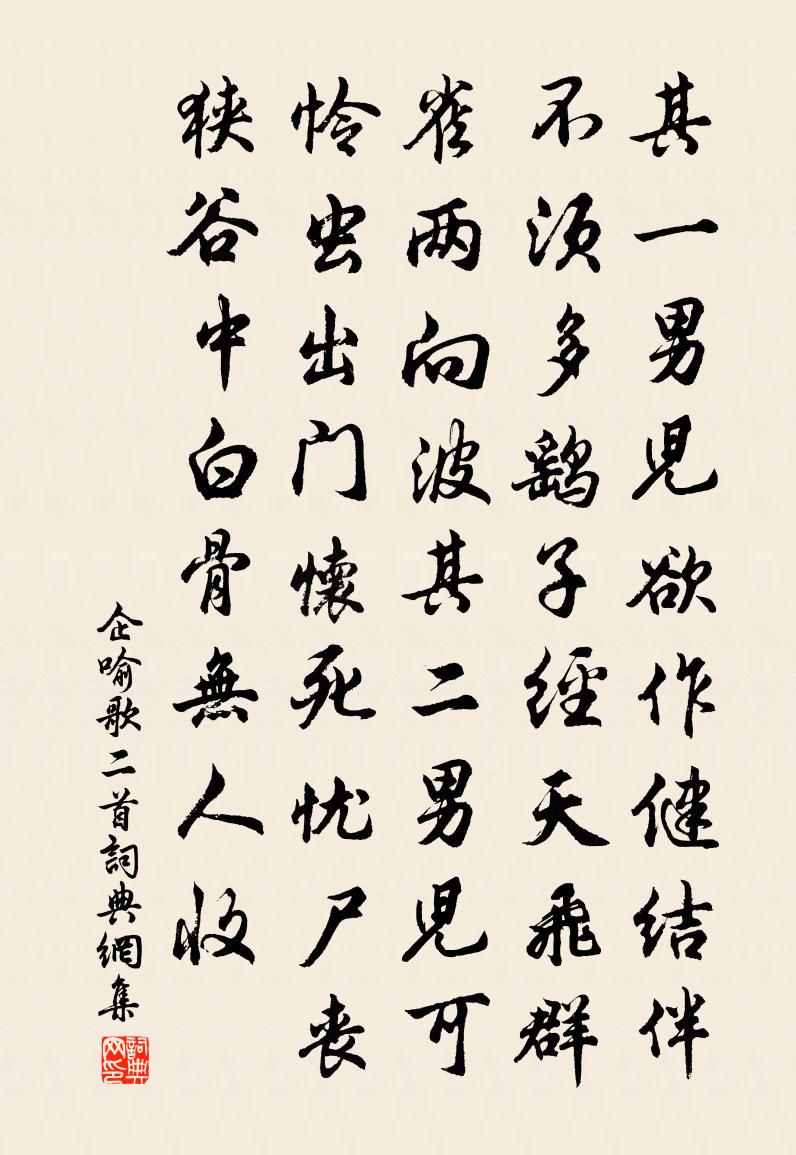 其一男児欲作健结伴
不须多鹞子經天飛群
雀两向波其二男児可
怜虫出门懐死忧尸丧
狭谷中白骨無人收
企喻歌二首詞典網集
詞典网印